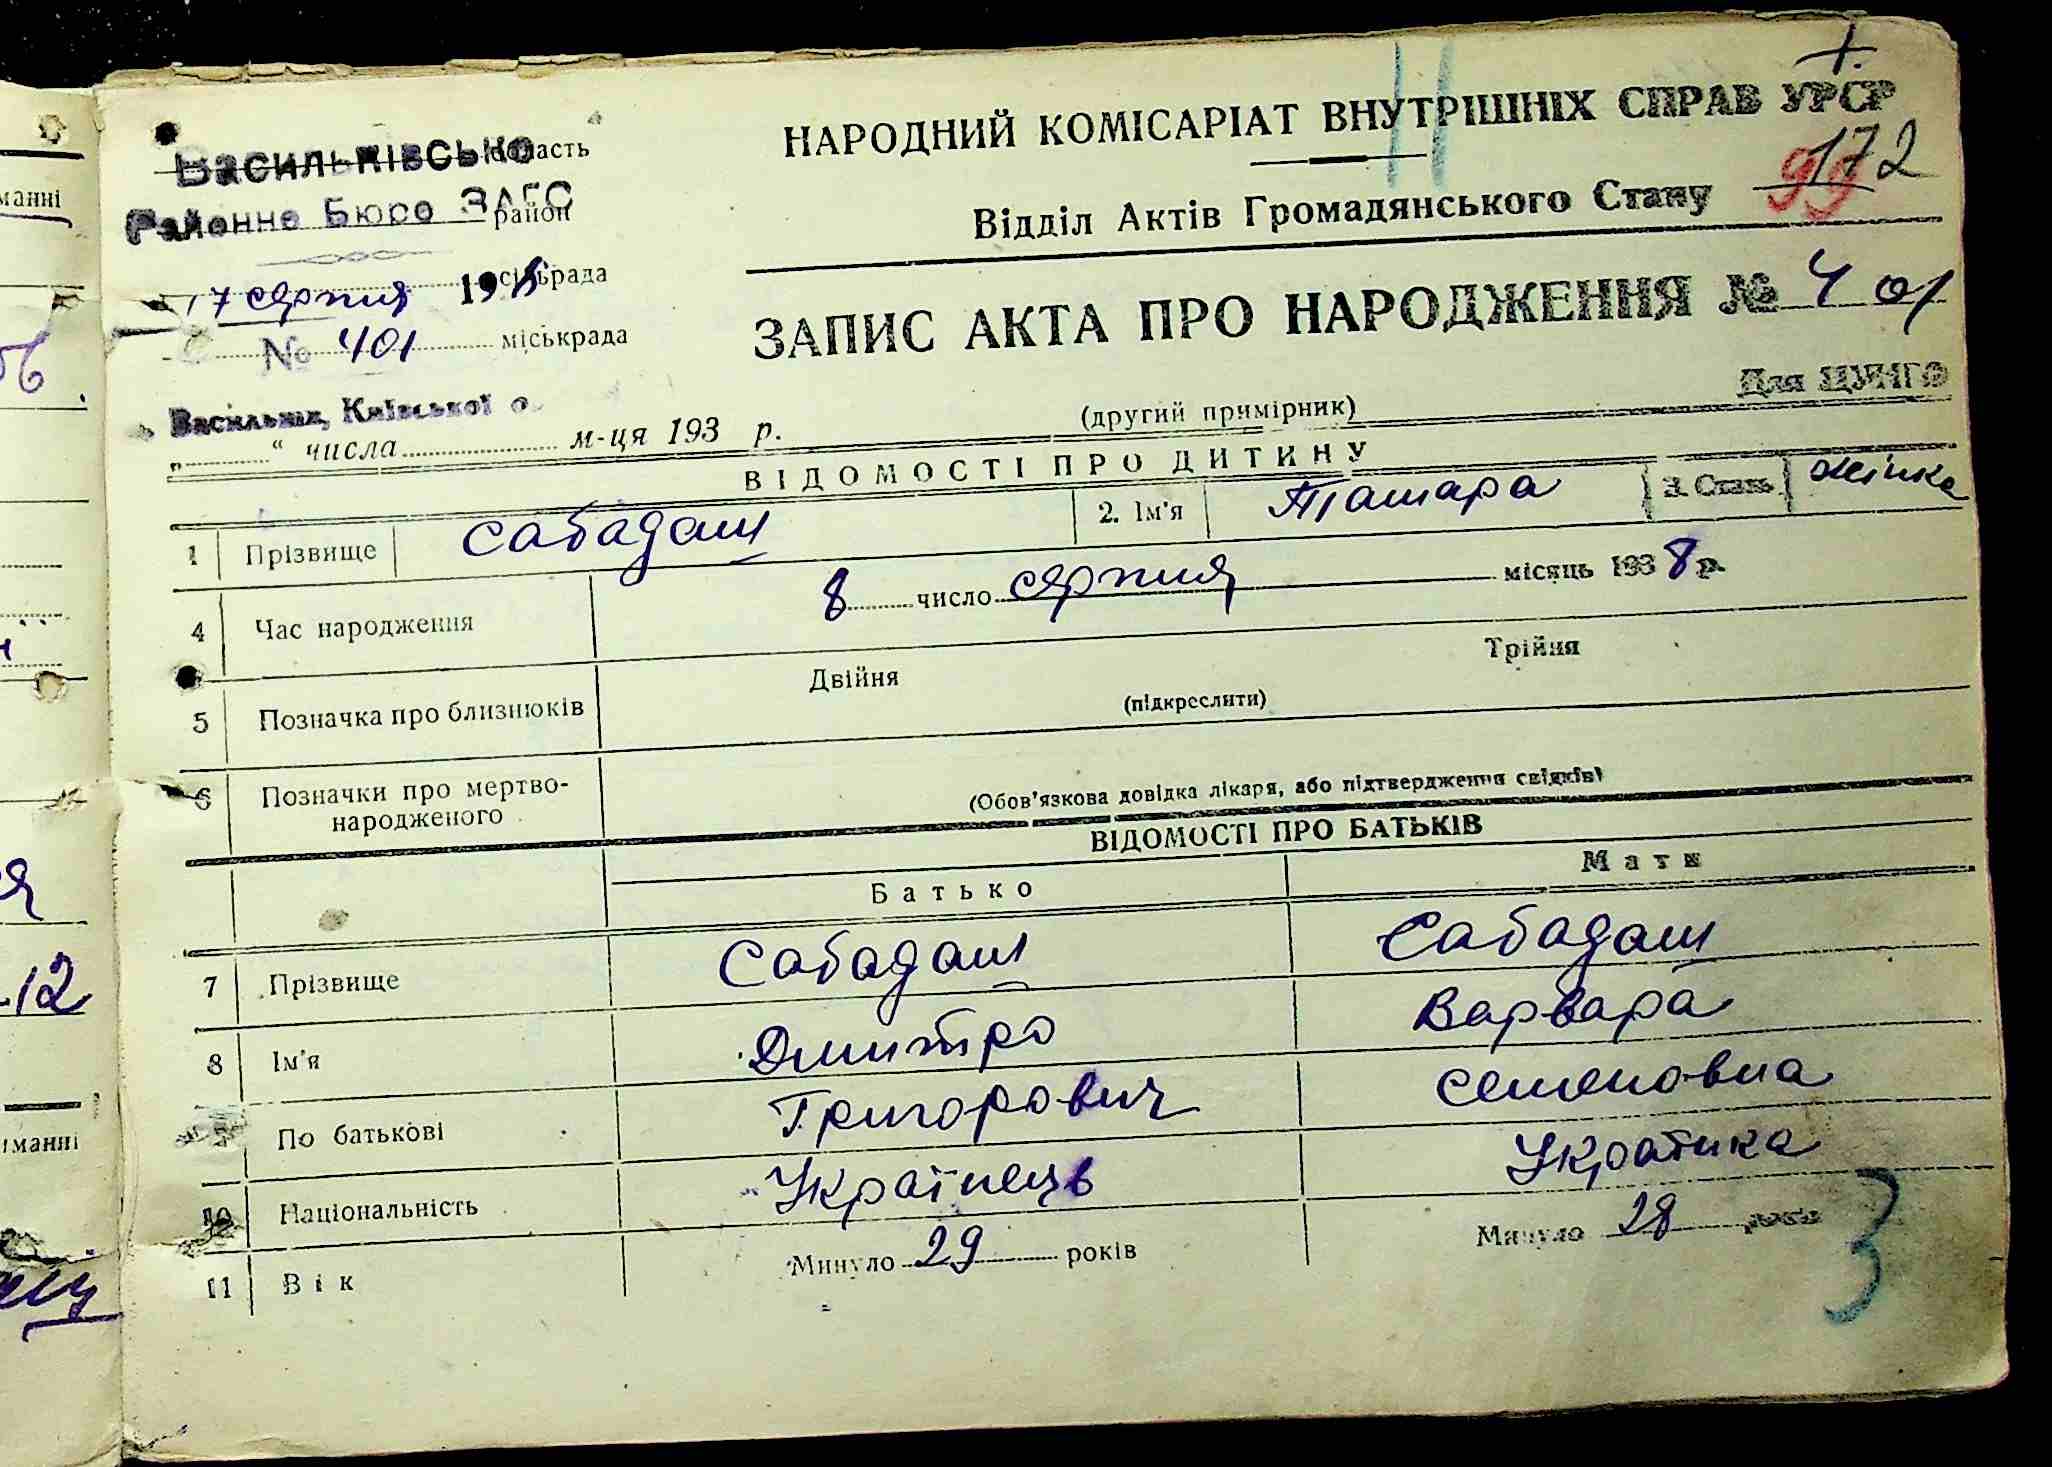 +
НАРОДНИЙ КОМІСАРІАТ ВНУТРІШНІХ СПРАВ УРСР
99 172
Відділ Актів Громадянського Стану
Васильківсько область
Районне Бюро ЗАГС район
17 серпня 193 сільрада
№ 401 міськрада
Васильків, Київської о.
„ “ числа м-ця 193 р.
ЗАПИС АКТА ПРО НАРОДЖЕННЯ № 401
(другий примірник)
Для ЦУНГО
ВІДОМОСТІ ПРО ДИТИНУ
1 Прізвище Сабадаш 2. Ім'я Тамара 3. Стать жінка
4 Час народження 8 число серпня місяць 1938 р.
5 Позначка про близнюків Двійня Трійня
(підкреслити)
6 Позначки про мертво-
народженого
(Обов'язкова довідка лікаря, або підтвердження свідків)
ВІДОМОСТІ ПРО БАТЬКІВ
Батько Мати
7 Прізвище Сабадаш Сабадаш
8 Ім'я Дмитро Варвара
9 По батькові Григорович Семеновна
10 Національність Українець Українка
11 Вік Минуло 29 років Минуло 28 років
3
манні
иманні
12